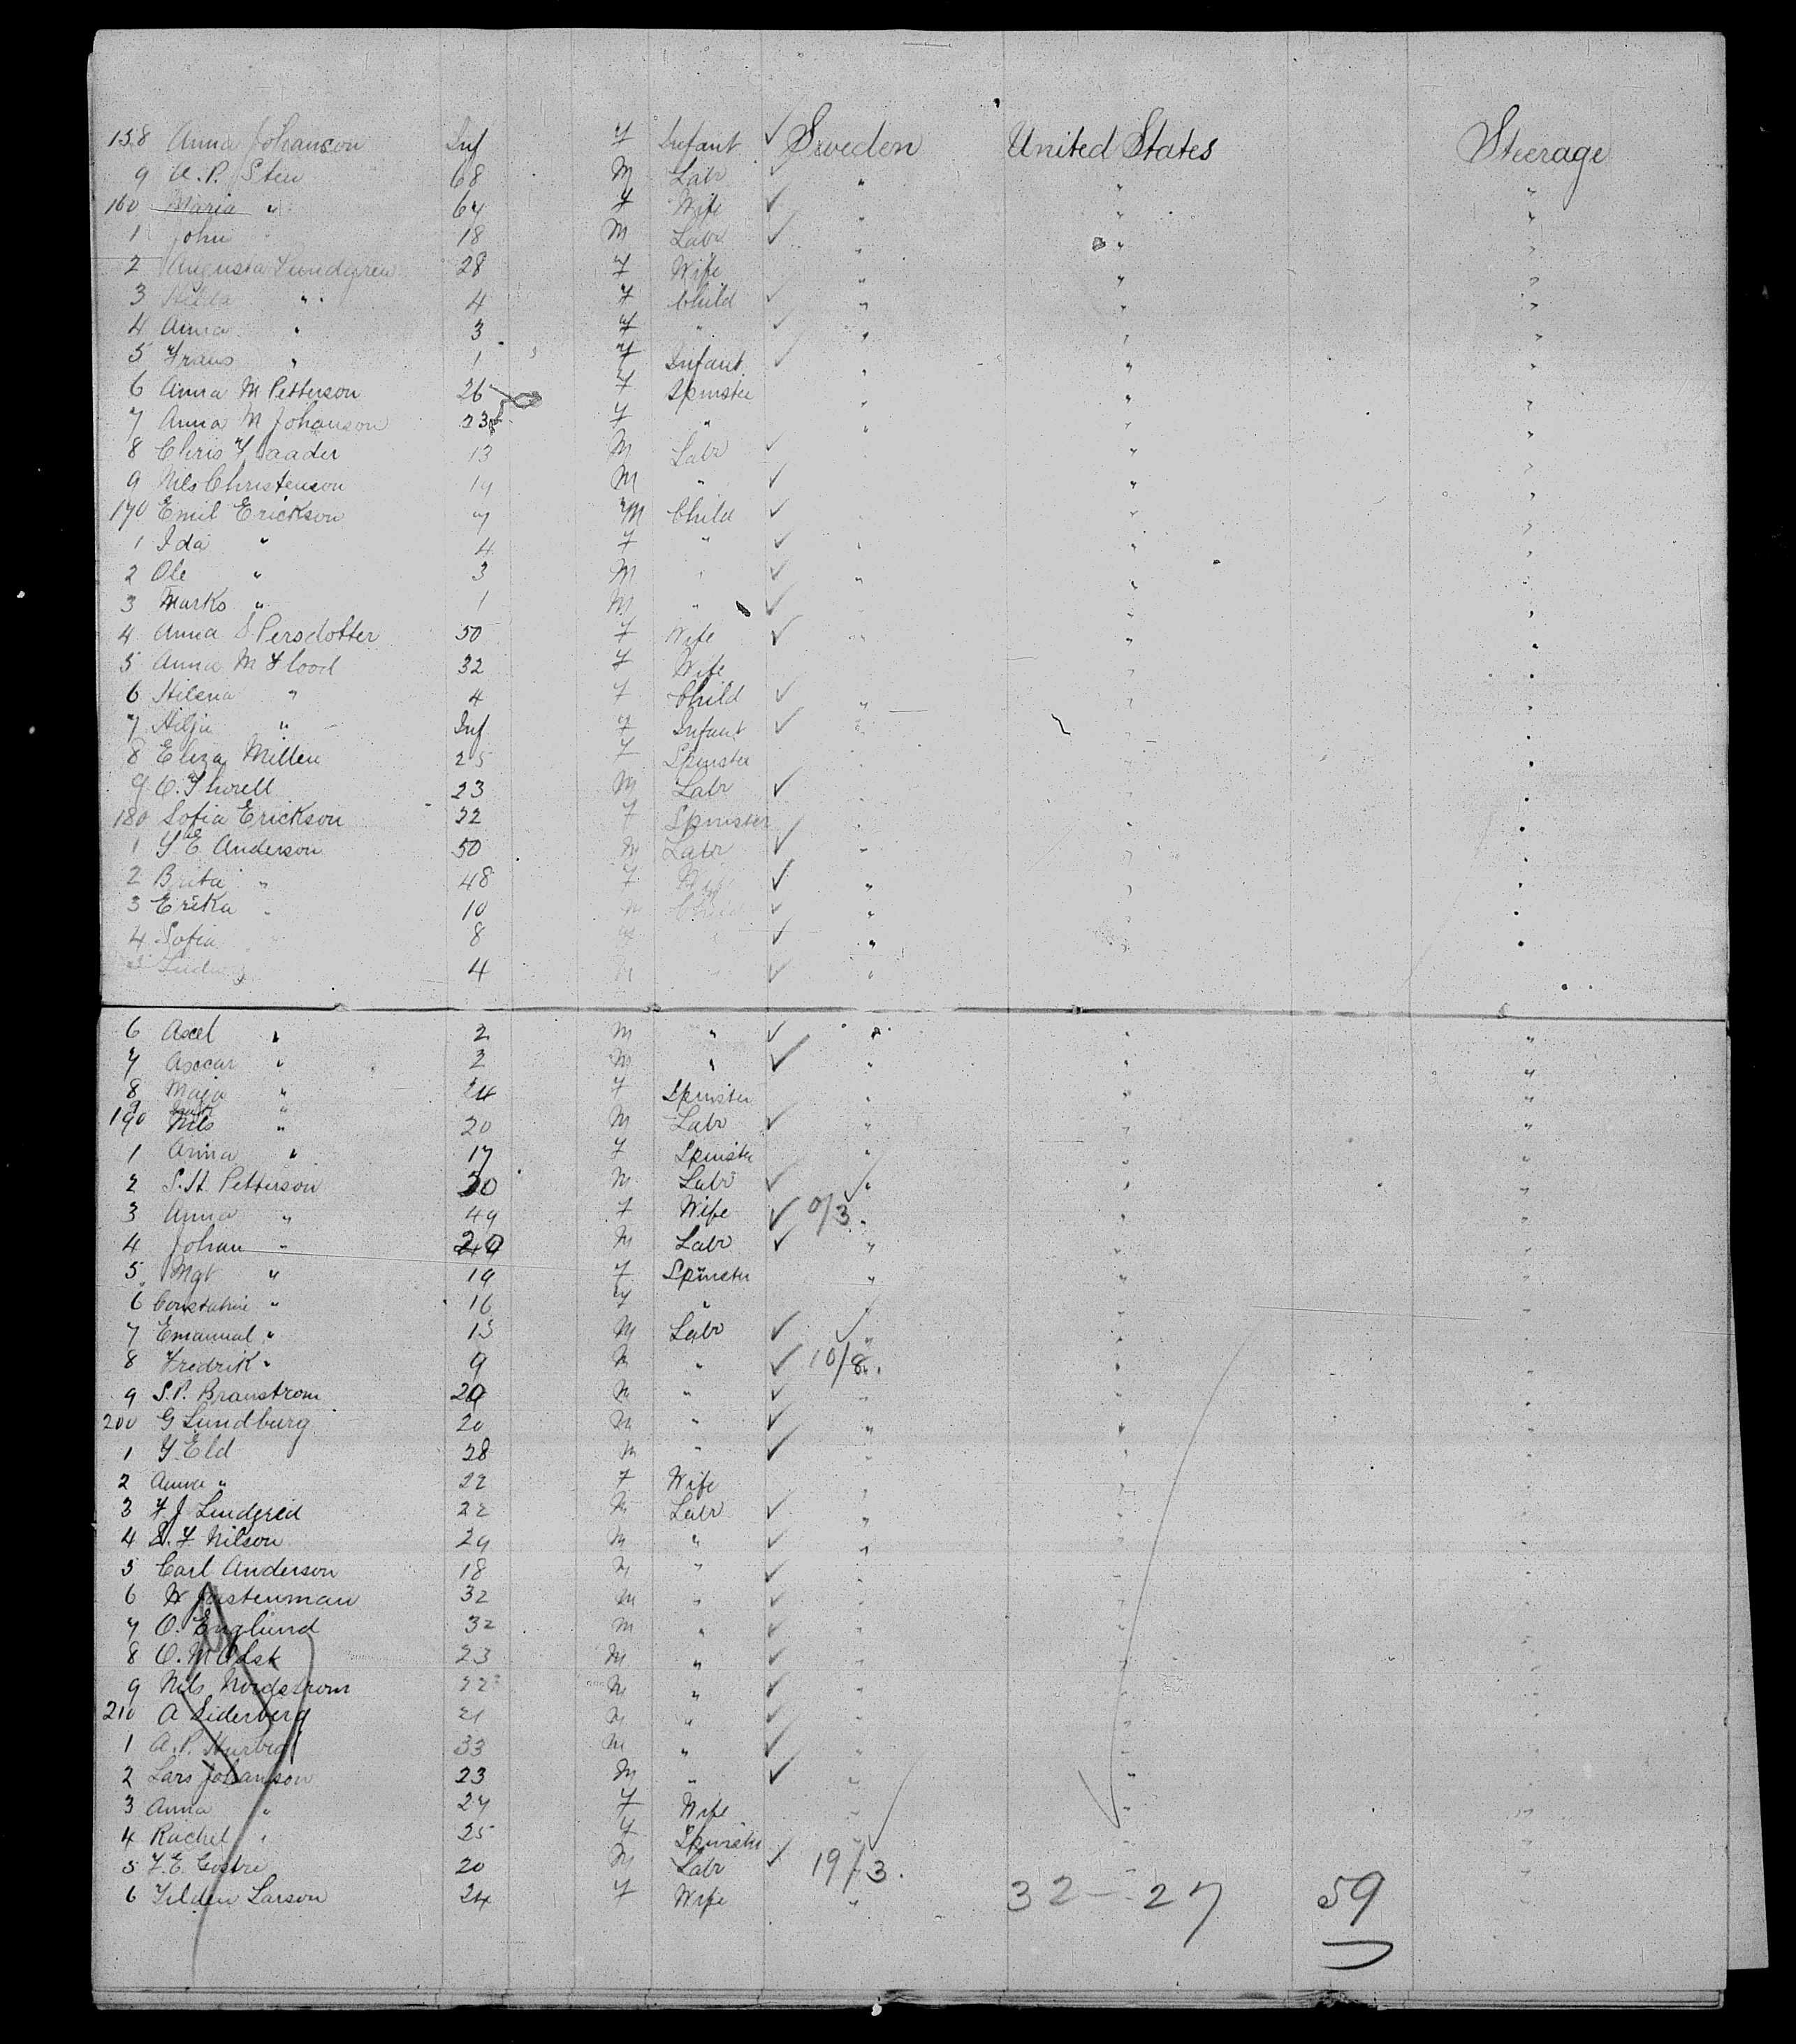 158 Anna Johanson Inf F Infant ✓ Sweden United States Steerage
9 A. P. Sten 68 M Labr ✓ " " "
160 Maria " 64 F Wife ✓ " " "
1 John 18 M Labr ✓ " " "
2 Augusta Lundgren 28 F Wife " " "
3 Hilda " 4 F Child ✓ " " "
4 Anna " 3 F " ✓ " " "
5 Frans " 1 F Infant ✓ " " "
6 Anna M Petterson 26 F Spinster " " "
7 Anna M Johanson 23 F " " " "
8 Chris 13 M Labr ✓ " "
9 Nils Christenson 19 M " ✓ " "
170 Emil Erickson 7 M Child ✓ " " "
1 Ida " 4 F " ✓ " " "
2 Ole " 3 M " ✓ " " "
3 Marks " 1 M " ✓ " "
4 Anna S Persdotter 50 F Wife ✓ " " "
5 Anna M Flood 32 F Wife " "
6 Hilena " 4 F Child ✓ " " "
7 Hilja " Inf F Infant ✓ " "
8 Eliza Millen 25 F Spinster " " "
9 O. Thorell 23 M Labr ✓ " "
180 Sofia Erickson 22 F Spinster " " "
1 E Anderson 50 M Labr ✓ " " "
2 Brita " 48 F ✓ " " "
3 Erika " 10 Child ✓ " " "
4 Sofia 8 ✓ " " "
4 ✓ "
6 Axel " 2 M " ✓ " " "
7 Ascar " 2 M " ✓ " " "
8 Maja " 24 F Spinster " " "
9 "
190 Nils " 20 M Labr ✓ " " "
1 Anna " 17 F Spinster " " "
2 S. H. Petterson 50 M Labr ✓ " " "
3 Anna " 49 F Wife ✓ 0/3. " "
4 Johan " 20 M Labr ✓ " " "
5 Mgt " 19 F Spinster " " "
6 " 16 F " " "
7 Emanual " 13 M Labr ✓ " " "
8 Fredrik " 9 M " ✓ 10/8. " "
9 S. P. Branstrom 29 M " ✓ " " "
200 G Lundburg 20 M " ✓ " " "
1 Eld 28 M " ✓ " " "
2 Anna " 22 F Wife " " "
3 F J 22 M Labr ✓ " " "
4 F Nilson 29 M " ✓ " " "
5 Carl Anderson 18 M " ✓ " " "
6 32 M " ✓ " " "
7 O. Englund 32 M " ✓ " " "
8 O. M 23 M " ✓ " " "
9 Nils Nordstrom 22 M " ✓ " " "
210 A 21 M " ✓ " " "
1 A. P. 33 M " ✓ " " "
2 Lars Johanson 23 M " ✓ " " "
3 Anna " 27 F Wife " " "
4 Rachel " 25 F Spinster " " "
5 F. E. 20 M Labr ✓ 19/3. " "
6 Larson 24 F Wife " 32 - 27 59 "